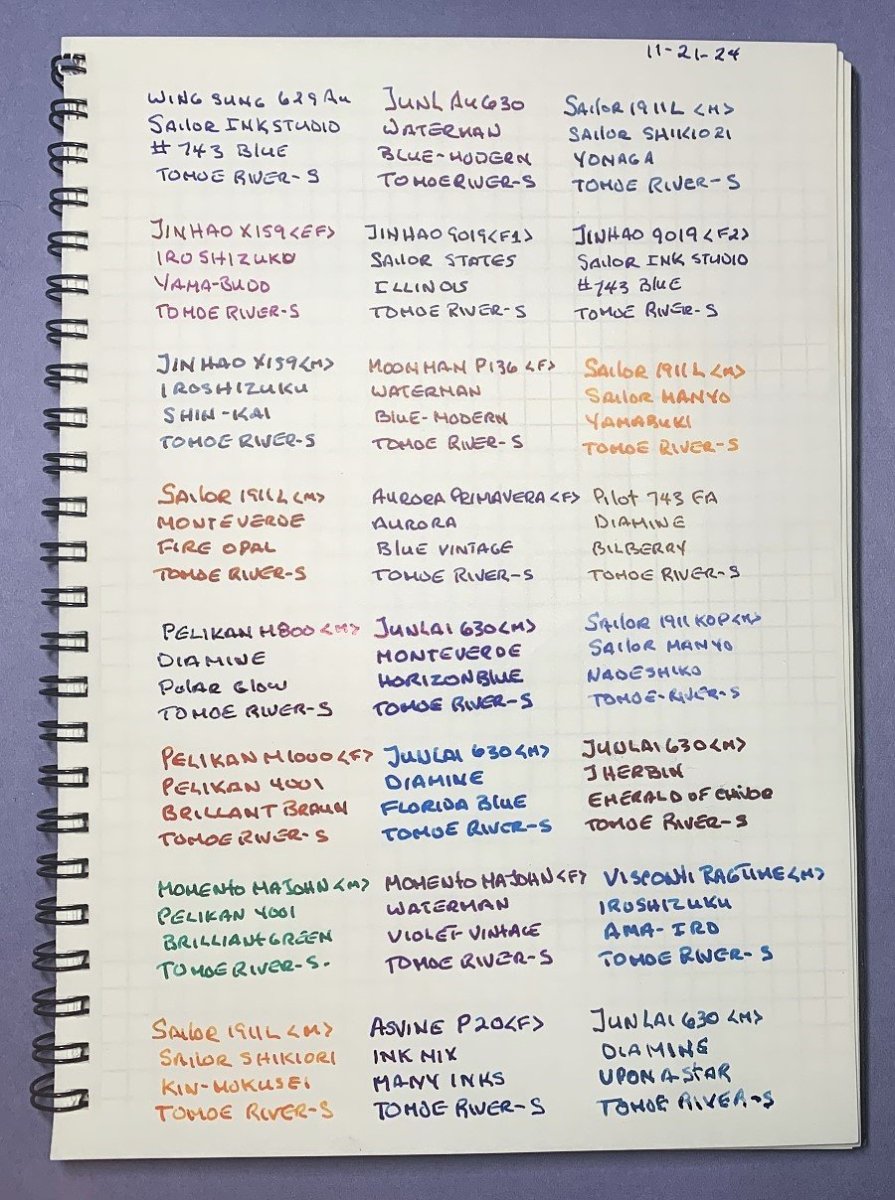 11-21-24
WING SUNG 629 Au
SAILOR INKSTUDIO
# 743 BLUE
TOMOE RIVER-S
JUNLAU 630
WATERMAN
BLUE-MODERN
TOMOERIVER-S
SAILOR 1911L <M>
SAILOR SHIKIORI
YONAGA
TOMOE RIVER-S
JINHAO X159<EF>
IROSHIZUKU
YAMA-BUDO
TOMOE RIVER-S
JINHAO 9019<F1>
SAILOR STATES
ILLINOIS
TOMOE RIVER-S
JINHAO 9019<F2>
SAILOR INK STUDIO
#743 BLUE
TOMOE RIVER-S
JINHAO X159<M>
IROSHIZUKU
SHIN-KAI
TOMOE RIVER-S
MOONMAN P136 <F>
WATERMAN
BLUE-MODERN
TOMOE RIVER-S
SAILOR 1911L <M>
SAILOR MANYO
YAMABUKI
TOMOE RIVER-S
SAILOR 1911L <M>
MONTEVERDE
FIRE OPAL
TOMOE RIVER-S
AURORA PRIMAVERA <F>
AURORA
BLUE VINTAGE
TOMOE RIVER-S
PILOT 743 FA
DIAMINE
BILBERRY
TOMOE RIVER-S
PELIKAN M800 <M>
DIAMINE
POLAR GLOW
TOMOE RIVER-S
JUNLAI 630<M>
MONTEVERDE
HORIZON BLUE
TOMOE RIVER-S
SAILOR 1911 KOP<M>
SAILOR MANYO
NADESHIKO
TOMOE-RIVER-S
PELIKAN M1000<F>
PELIKAN 4001
BRILLANT BRAUN
TOMOE RIVER-S
JUNLAI 630<M>
DIAMINE
FLORIDA BLUE
TOMOE RIVER-S
JUNLAI 630<M>
JHERBIN
EMERALD OF CHIVOR
TOMOE RIVER-S
MOMENTO MAJOHN<M>
PELIKAN 4001
BRILLIANT GREEN
TOMOE RIVER-S.
MOMENTO MAJOHN<F>
WATERMAN
VIOLET-VINTAGE
TOMOE RIVER-S
VISCONTI RAGTIME<M>
IROSHIZUKU
AMA-IRO
TOMOE RIVER-S
SAILOR 1911L <M>
SAILOR SHIKIORI
KIN-MOKUSEI
TOMOE RIVER-S
ASVINE P20<F>
INK MIX
MANY INKS
TOMOE RIVER-S
JUNLAI 630 <M>
DIAMINE
UPON A STAR
TOMOE RIVER-S